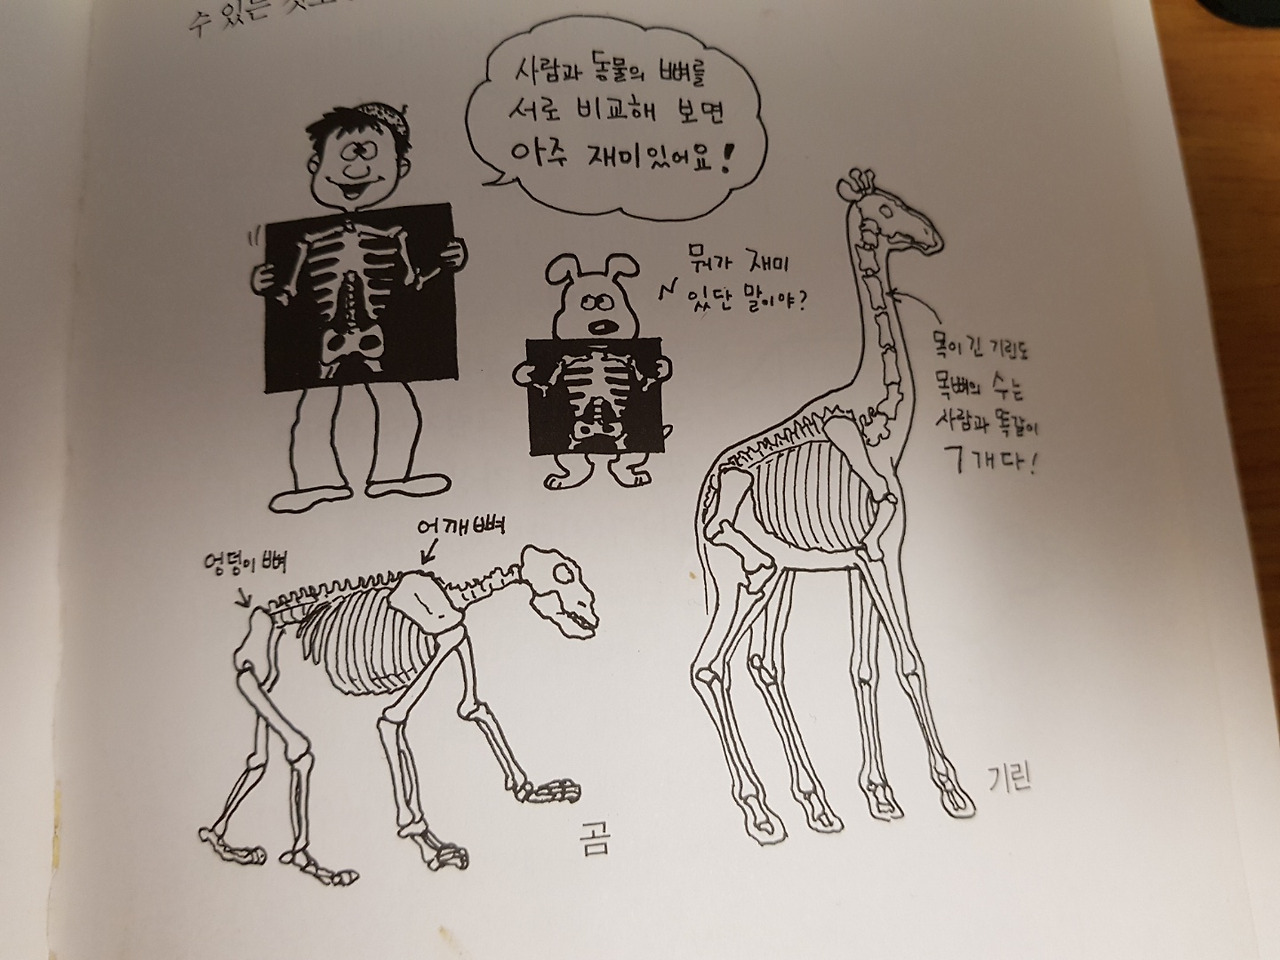 수 있는
사람과 동물의 뼈를
서로 비교해 보면
아주 재미있어요!
뭐가 재미
있단 말이야?
목이 긴 기린도
목뼈의 수는
사람과 똑같이
7개다!
어깨뼈
엉덩이뼈
기린
곰